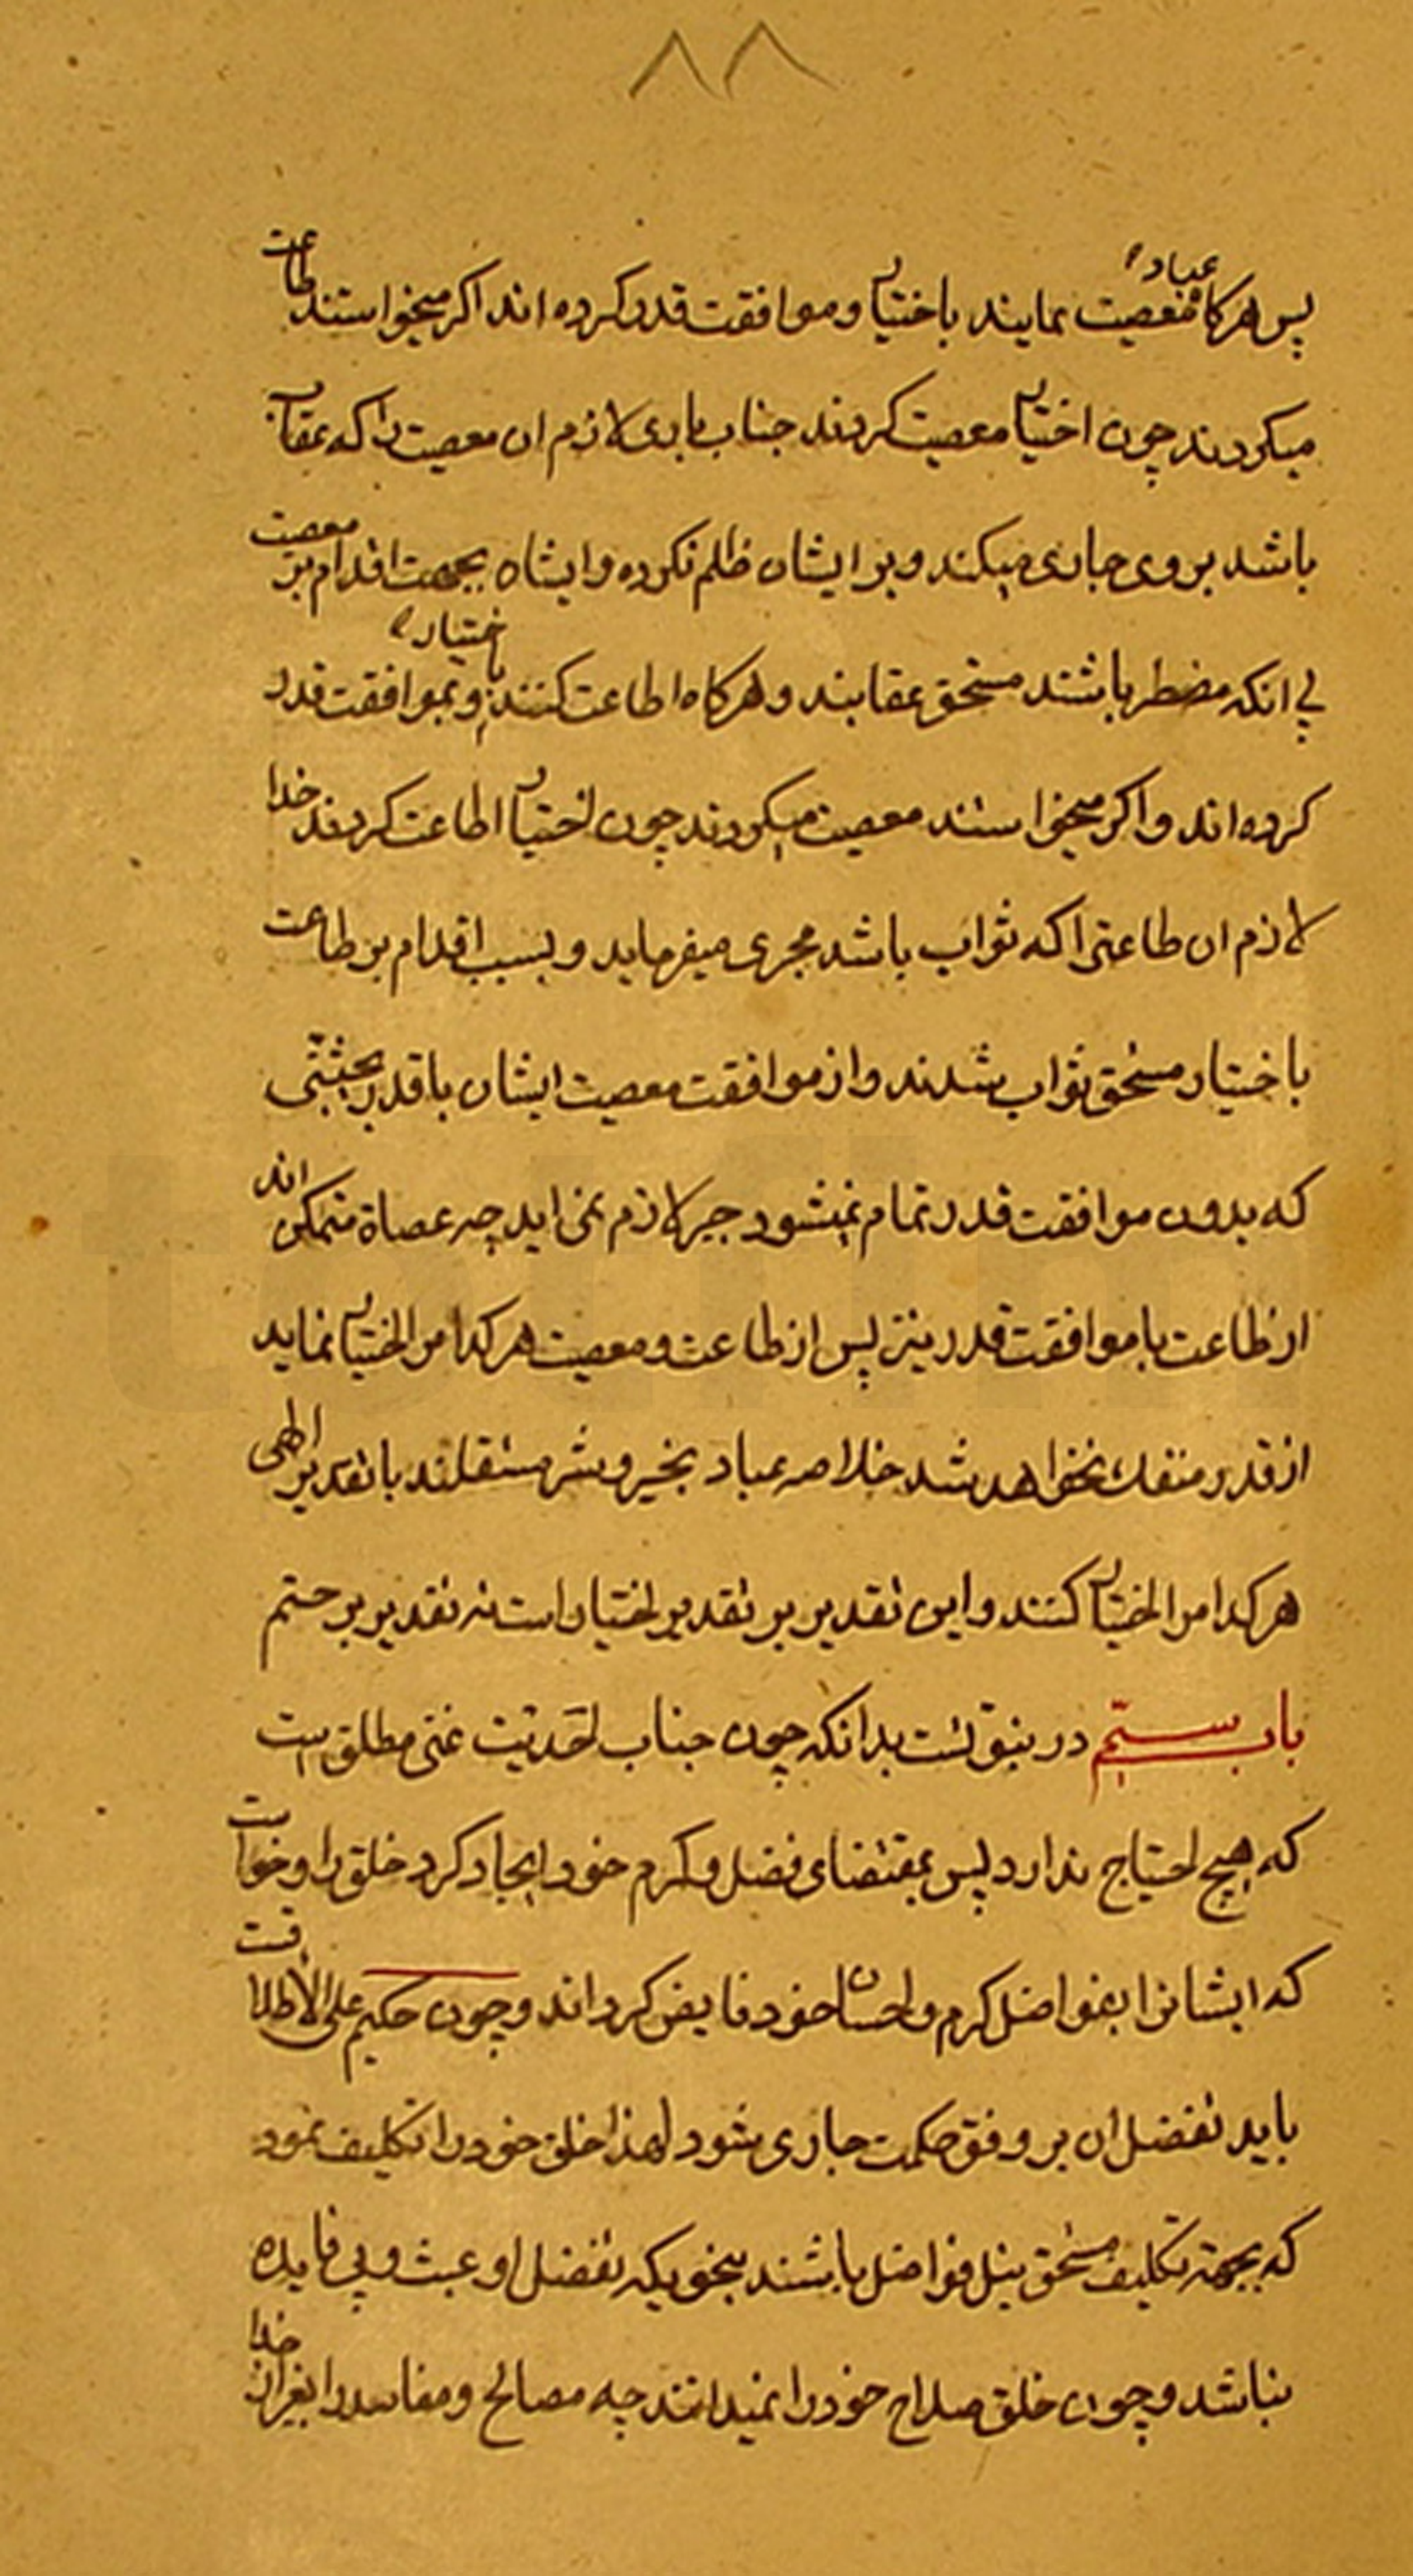 ۸۸
پس هرکاه عباد معصیت نمایند باختیار و موافقت قدر کرده اند اکر میخواستند طاعت
میکردند چون اختیار معصیت کردند جناب باری لازم ان معصیت را که عقاب
باشد بر وی جاری میکند و بر ایشان ظلم نکرده و ایشان بجهت اقدام بر معصیت
بی انکه مضطر باشند مستحق عقابند و هرکاه اطاعت کنند باختیار و بموافقت قدر
کرده اند و اکر میخواستند معصیت میکردند چون اختیار اطاعت کردند خدا
لازم ان طاعتی را که ثواب باشد مجری میفرماید و بسبب اقدام بر طاعت
باختیار مستحق ثواب شدند و از موافقت معصیت ایشان با قدر بحیثیتی
که بدون موافقت قدر تمام نمیشود جبر لازم نمی اید چه عصاة متمکن اند
از طاعت با موافقت قدر نیز پس از طاعت و معصیت هر کدام را اختیار نماید
از قدر منفك نخواهد شد خلاصه عباد بخیر و شر مستقلند با تقدیر الهی
هر کدام را اختیار کنند و این تقدیر بر تقدیر اختیار است نه تقدیر بر حتم
باب سیّم در نبوّتست بدانکه چون جناب احدیّت غنی مطلق است
که هیچ احتیاج ندارد پس بمقتضای فضل و کرم خود ایجاد کرد خلق را و خواست
که ایشانرا بفواضل کرم و احسان خود فایض کرداند و چون حکیم علی الاطلاقست
باید تفضل ان بر وفق حکمت جاری شود لهذا خلق خود را تکلیف نمود
که بجهة تکلیف مستحق نیل فواضل باشند بنحویکه تفضل او عبث و بی فایده
نباشد و چون خلق صلاح خود را نمیدانند چه مصالح و مفاسد را بغیر از خدا